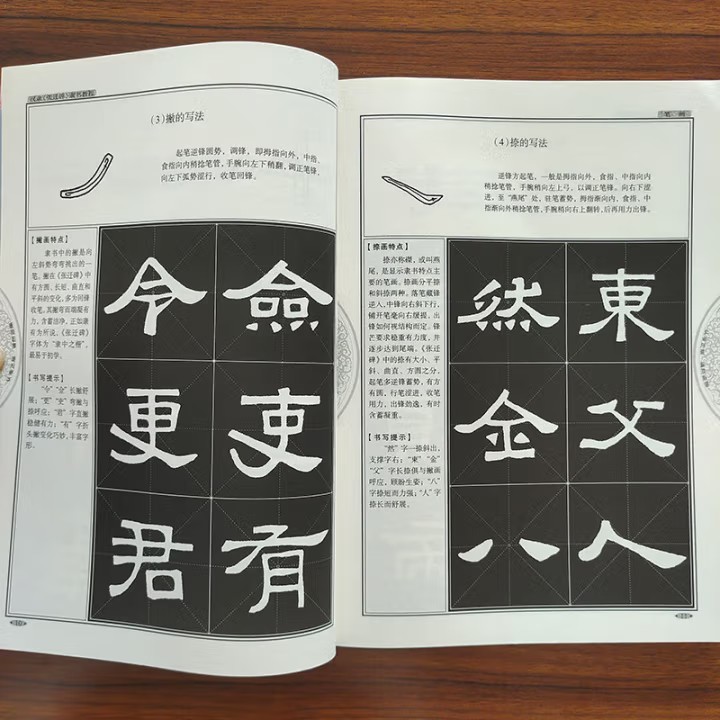 汉隶《张迁碑》隶书教程
(3)撇的写法
起笔逆锋圆势，调锋，即拇指向外，中指、
食指向内稍捻笔管，手腕向左下稍翻，调正笔锋，
向左下弧势涩行，收笔回锋。
【撇画特点】
隶书中的撇是向
左斜势弯弯挑出的一
笔。撇在《张迁碑》中
有方圆、长短、曲直和
平斜的变化，多为回锋
收笔，其撇弯而端凝有
力，含蓄洁净，正如康
有为所说，《张迁碑》
字体为“隶中之楷”，
最易于初学。
【书写提示】
“今”“佥”长撇舒
展；“更”“吏”弯撇与
捺呼应；“君”字直撇
稳健有力；“有”字折
头撇变化巧妙，丰富字
形。
今
佥
更
吏
君
有
笔画
(4)捺的写法
逆锋方起笔，一般是拇指向外，食指、中指向内
稍捻笔管，手腕稍向左上弓，以调正笔锋。向右下涩
进，至“燕尾”处，驻笔蓄势，拇指渐向内，食指、中
指渐向外稍捻笔管，手腕稍向右上翻转，后再用力出锋。
【捺画特点】
捺亦称磔，或叫燕
尾，是显示隶书特点主
要的笔画。捺画分平捺
和斜捺两种。落笔藏锋
逆入，中锋向右斜下行，
倾开笔毫向右缓提，出
锋如何视结构而定。锋
芒要求稳重有力度，并
逐步达到尾端。《张迁
碑》中的捺有大小、平
斜、曲直、方圆之分，
起笔多逆锋蓄势，有方
有圆，行笔涩进，收笔
用力，出锋劲逸，有时
含蓄凝重。
【书写提示】
“然”字一捺斜出，
支撑字右；“東”“金”
“父”字长捺俱与撇画
呼应，顾盼生姿；“八”
字捺短而力强；“人”字
捺长而舒展。
然
東
金
父
八
人